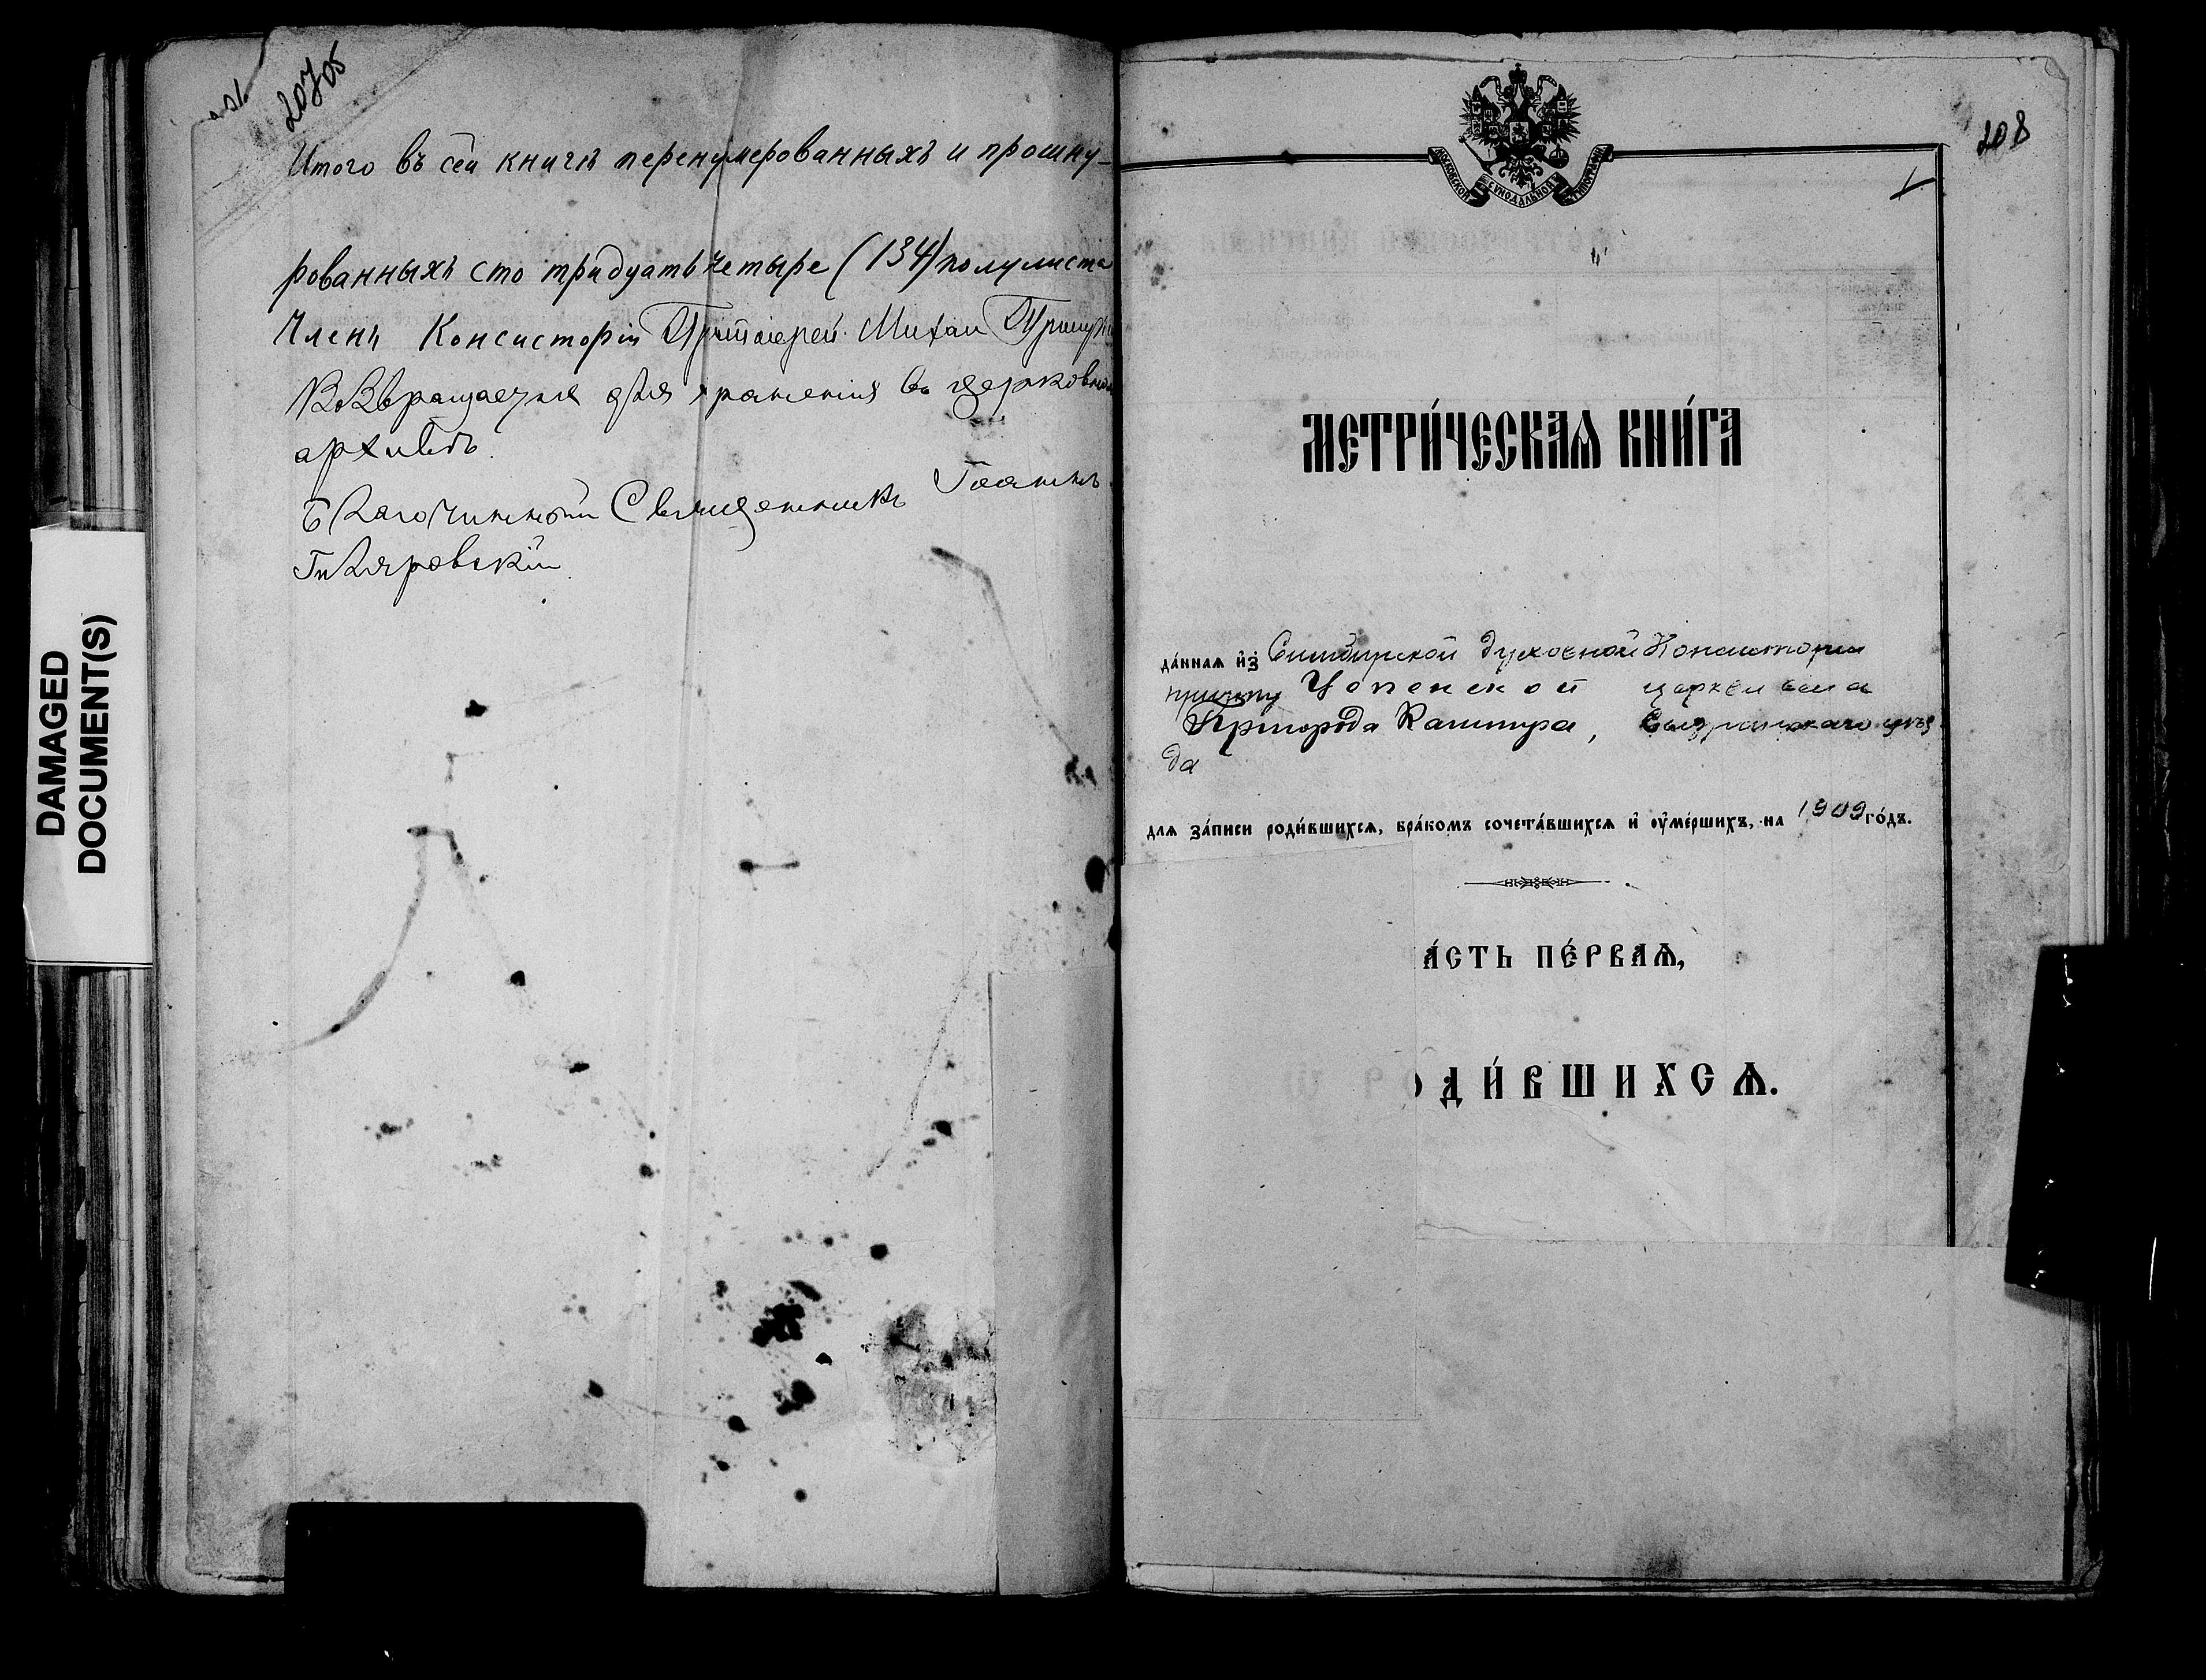 207об
Итого въ сей книгѣ перенумерованныхъ и прошну-
рованныхъ сто тридцать четыре (134) полулиста
Членъ Консисторіи Протоіерей Михаи
Возвращается для храненія въ церковном
архивѣ.
Благочинный Священникъ Іоаннъ
DAMAGED
DOCUMENT(S)
208
1
МОСКОВСКОЙ СѴНОДАЛЬНОЙ ТИПОГРАФІИ
МЕТРИ́ЧЕСКАѦ КНИ́ГА
да́ннаѧ и҆з̾ Симбирской Духовной Консисторіи
причту Успенской церкви села
Пригорода Кашпира, Сызранскаго уѣз
да
для за́писи роди́вшихсѧ, бра́комъ сочета́вшихсѧ и҆ оу҆ме́ршихъ, на 1909 го́дъ.
А́СТЬ ПЕ́РВАѦ,
ОДИ́ВШИХСѦ.